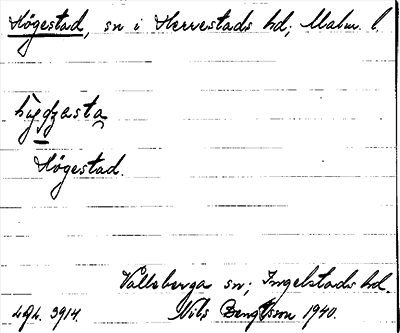 Högestad, sn i Herrestads hd; Malm. l.
Högestad.
Valleberga sn; Ingelstads hd.
Nils Bengtsson 1940.